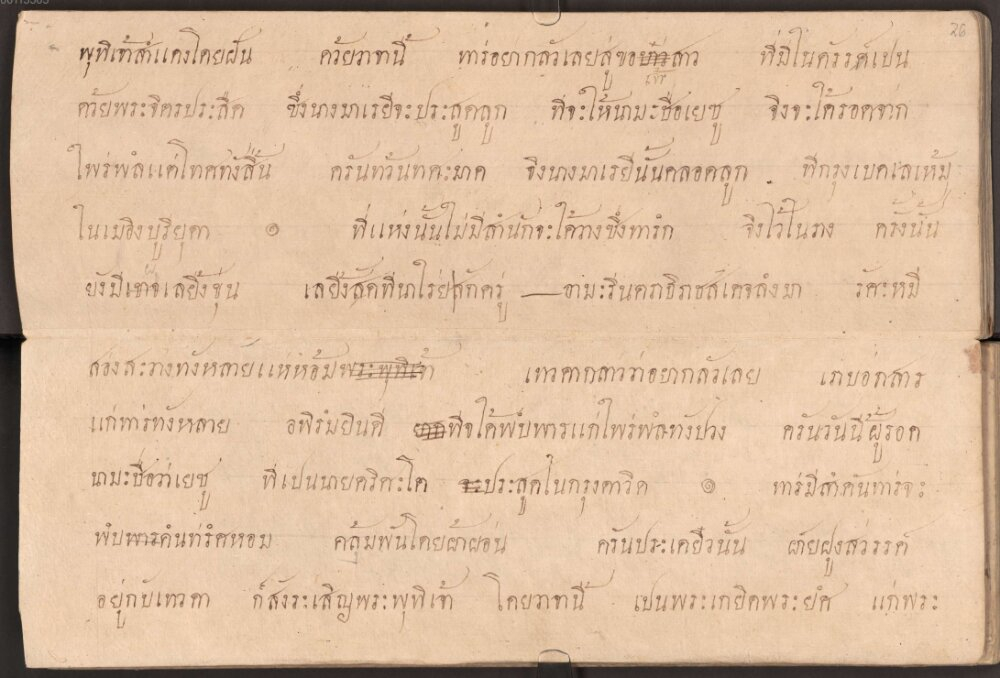 26
พุทิเจ้าสำแดงโดยฝัน ด้วยวาทนี้ ท่าร์อยากลัวเลยสู่ขอสาว ที่มีในครรค์เปน
ด้วยพระจิตรประสิด ซึ่งนางมาเรยีจะประสูดลูก ที่จะให้นามะชื่อเยซู จึงจะได้รอดจาก
ไพร่พลแต่โทศทังสิ้น ครันทวันทคะมาด จึงนางมาเรยีนั้นคลอดลูก ที่กรุงเบดเลเห้ม
ในเมอิงยูริยุดา ๑ ที่แห่งนั้นไม่มีสำนักจะได้วางซึ่งทาร์ก จึงไว้ในราง ครั้งนั้น
ยังมี เลยี้งชุ่น เลยีงสัดที่นาไร่ ลักครู่ — อามะรินดราธิราชส์เดจลังมา รัศะหมี
ส่วงสะว่างทังหลายแห่ห้อม เทวดากล่าวว่าอยากลัวเลย เราบอ่กสาร
แก่ท่าร์ทังหลาย อพิรมยินดี ที่จได้พบพารแก่ไพร่พลทังปวง ครันวันนี้ผู้รอด
นามะชื่อว่าเยซู ที่เปนนายคริศะโต ประสูดในกรุงดาวิด ๑ ท่าร์มีสำคันท่าร์จะ
พบพารค้นทาริศหอม คลุ้มพันโดยผ้าผ่อน ครันประเดยีวนั้น ฝ่ายฝูงสวรรค์
อยู่กับเทวดา ก็สังระเสิญพระพุทิเจ้า โดยวาทนี้ เปนพระเกยิดพระยศ แก่พระ